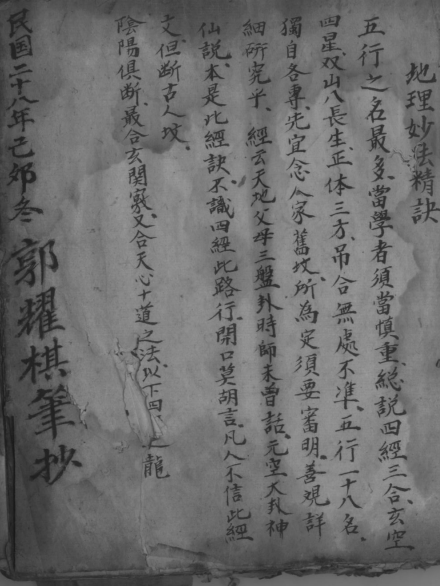 地理妙法精訣
五行之名最多、當學者須當慎重、総説四經三合、玄空
四星、双山八長生、正体三方、吊合無處不準、五行一十八名、
獨自各専、先宜念人家舊坟、所為定須要審明、善覌詳
細研究乎、經云天地父母三盤卦時師未曽話、元空大卦神
仙説、本是此經訣、不識四經此路行、開口莫胡言、凡人不信此經
文、但断古人坟、
陰陽俱断、最合玄関竅、又合天心十道之法、以下四 龍
民国二十八年己夘冬 郭耀棋筆抄